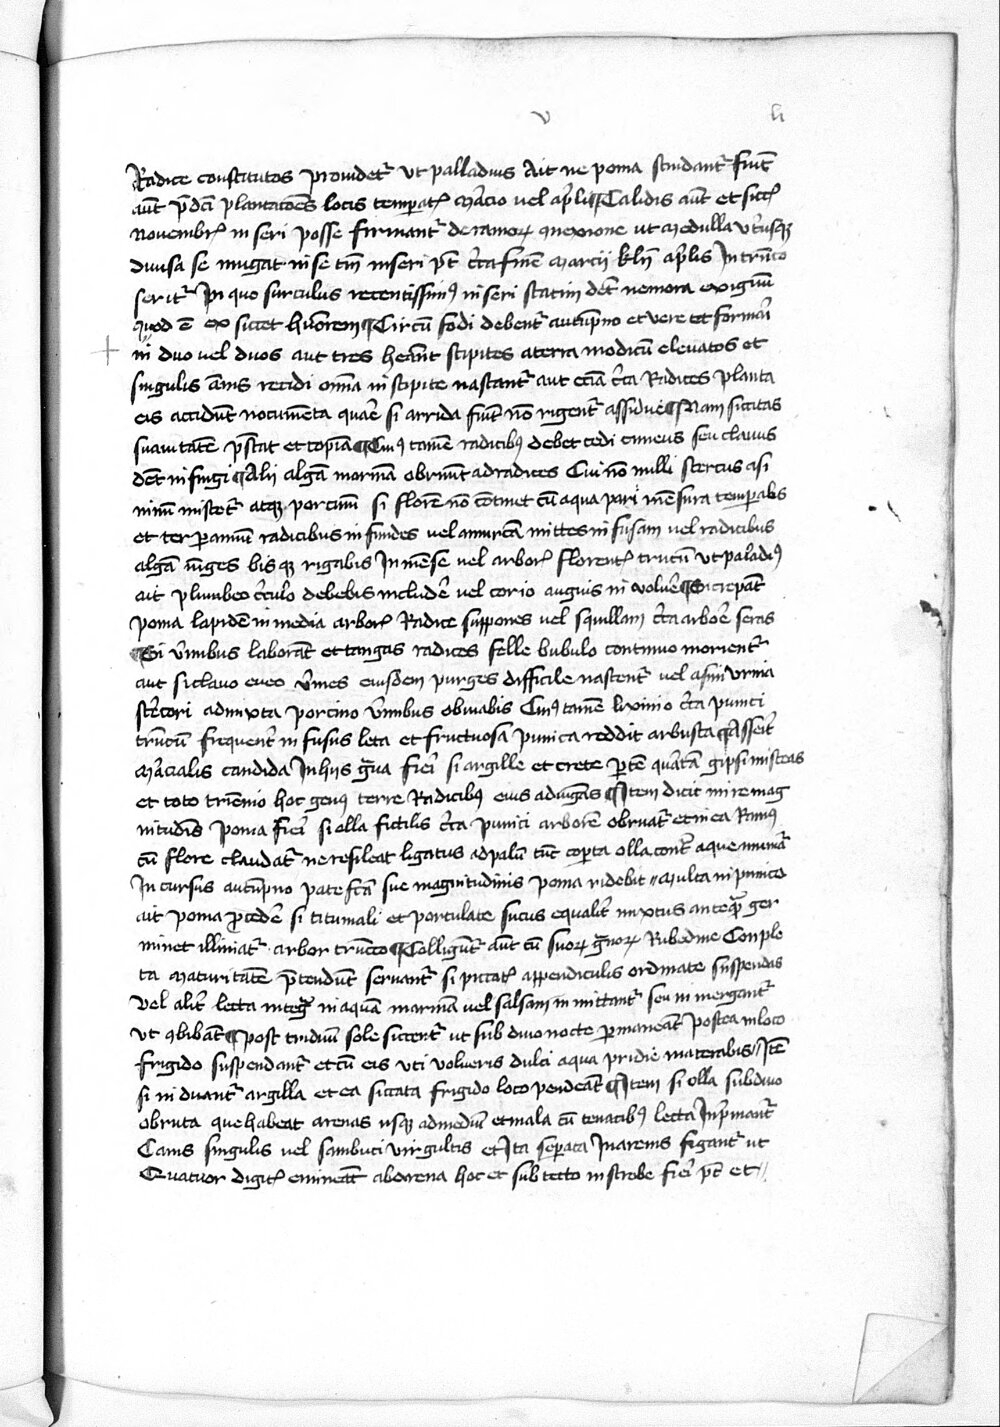 v li
Radice constitutos prouidet᷑ vt palladius Ait ne poma scindant᷑ fiūt
aūt p̄dcī plantacōes locis temperat᷑ Marcio vel aprli ¶ Calidis aūt et siccꝭ
Nouembrꝭ inseri posse firmant᷑ de ramoꝝ 9nexione ut Medulla vt᷑usqꝫ
diuisa se iungat in se tm̄ inseri pt̄ cr̄ca finē Marcij kln̄ aprlis In trūco
serit᷑ In quo surculus recentissimꝰ inseri statim det nemora exiguū
quod ē ex siccet humorem ¶ Circū fodi debent᷑ autūpno et vere et formari
in duo vel duos aut tres heant stipites a terra modicū eleuatos et
singulis annis recidi omnia in stipite nascant᷑ aut eciā cr̄ca Radices planta
eis accidūt nocumēta quare si arrida fiūt nō rigent᷑ assidue ¶ Nam siccitas
suauitatē prestat et copiā ¶ Cuiꝰ tamē radicibꝰ debet cedi cuneus seu clauus
det infingi ¶ Alij algam marinā obruunt ad radices Cui nō nulli stercus asi
ninū miscet᷑ atqꝫ porcinum si florē nō cōtinet cū aqua pari mēsura temperabis
et ter per annum radicibus infundes vel amurcā mittes infusam vel radicibus
algā iūges bisqꝫ rigabis In mēse vel arborꝭ florentꝭ trūcū vt palladiꝰ
ait plumbeo circulo debebis includere vel corio anguis inuoluere ¶ Si crepāt
poma lapidē in media arborꝭ Radice suppones vel squillam cr̄ca arborē seras
¶ Si vermibus laborāt et tangas radices felle bubulo continuo morient᷑
aut si clauo eneo vermes eiusdem purges difficile nascent᷑ vel asini vrina
stercori admixta porcino vermibus obuiabis Cuiꝰ tamē lixinio cr̄ca punici
trūcū frequent᷑ infusus leta et fructuosa punica reddit arbusta ¶ Asserit
Marcialis candida In hijs gūa fieri si argille et crete partē quartā gipsi misceas
et toto triēnio hoc genꝰ terre Radicibꝰ eius adiūgas ¶ Item dicit mire mag
nitudīs Poma fieri si olla fictilis cr̄ca punici arborē obruat᷑ et in ea Ramꝰ
cū flore claudat᷑ ne resileat ligatus ad palū tūc coperta olla cont᷑ aque
In cursus autūpno patefacta sue magnitudinis poma ridebit Multa in punico
ait poma procedere si titumali et portulate sucus equalit᷑ mixtus anteqᷓ ger
minet illiniat᷑ arbor trūco ¶ Colligūt᷑ aūt cū suoꝝ gᷓnoꝝ Rubedine Conple
ta Maturitatē p̄tendūt seruant᷑ si piccatꝭ appendiculis ordinate suspendas
vel alit᷑ lecta integra in aquā marinā vel salsam inmittant᷑ seu in mergant᷑
vt 9bibāt ¶ post triduū sole siccent᷑ ut sub diuo nocte permaneāt postea in loco
frigido suspendant᷑ et cū eis vti volueris dulci aqua pridie macerabis Itē
si induant᷑ argilla et ea siccata frigido loco pendeāt ¶ Item si olla sub diuo
obruta que habeat arenas usqꝫ ad mediū et mala cū tenacibꝰ lecta Inprimant᷑
Cannis singulis vel sambuci virgultis et Ita seperata In arenis figant᷑ ut
Quatuor digitꝭ emineāt ab arena hoc et sub tecto in scrobe fieri pt̄ et